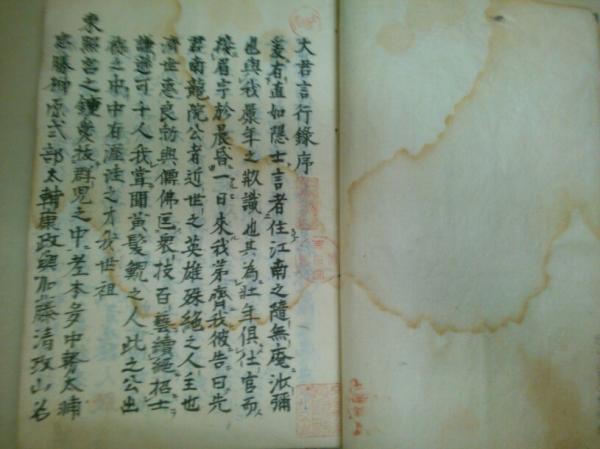 大君言行錄序
爰有直如隱士言者住江南之隨無庵沙彌
也與我晨年之欵識也其為壯年俱仕官而
接眉宇於晨昏一日來我茅齋我彼告曰先
君南龍院公者近世之英雄殊絕之人主也
濟世惠良勃與儒佛匡眾技百藝續絕招士
謙遜可千人我嘗聞黃髮之人此之公出
之中中有涯之才我世祖
東照宮之鍾愛拔群児之中老本多中務太輔
忠勝神原式部太輔康政與加藤清政山名